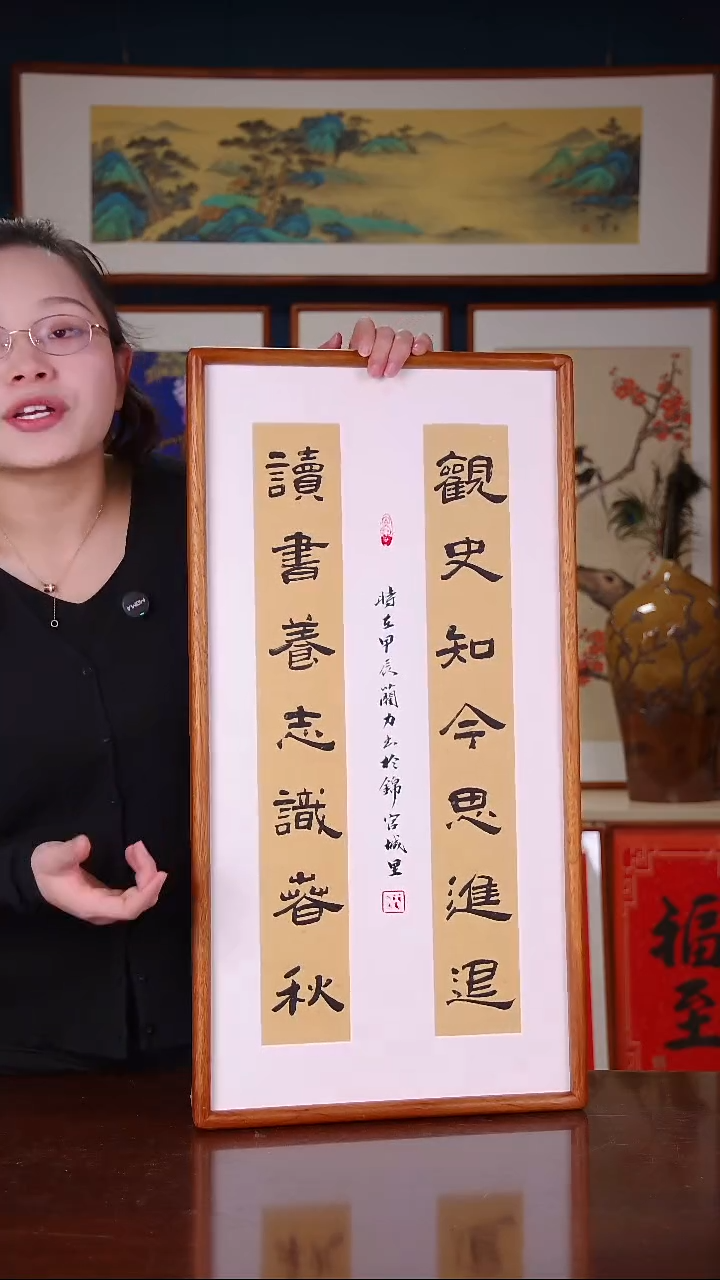 觀史知今思進退
讀書養志識春秋
時在甲辰蘭力書於錦官城里
福至